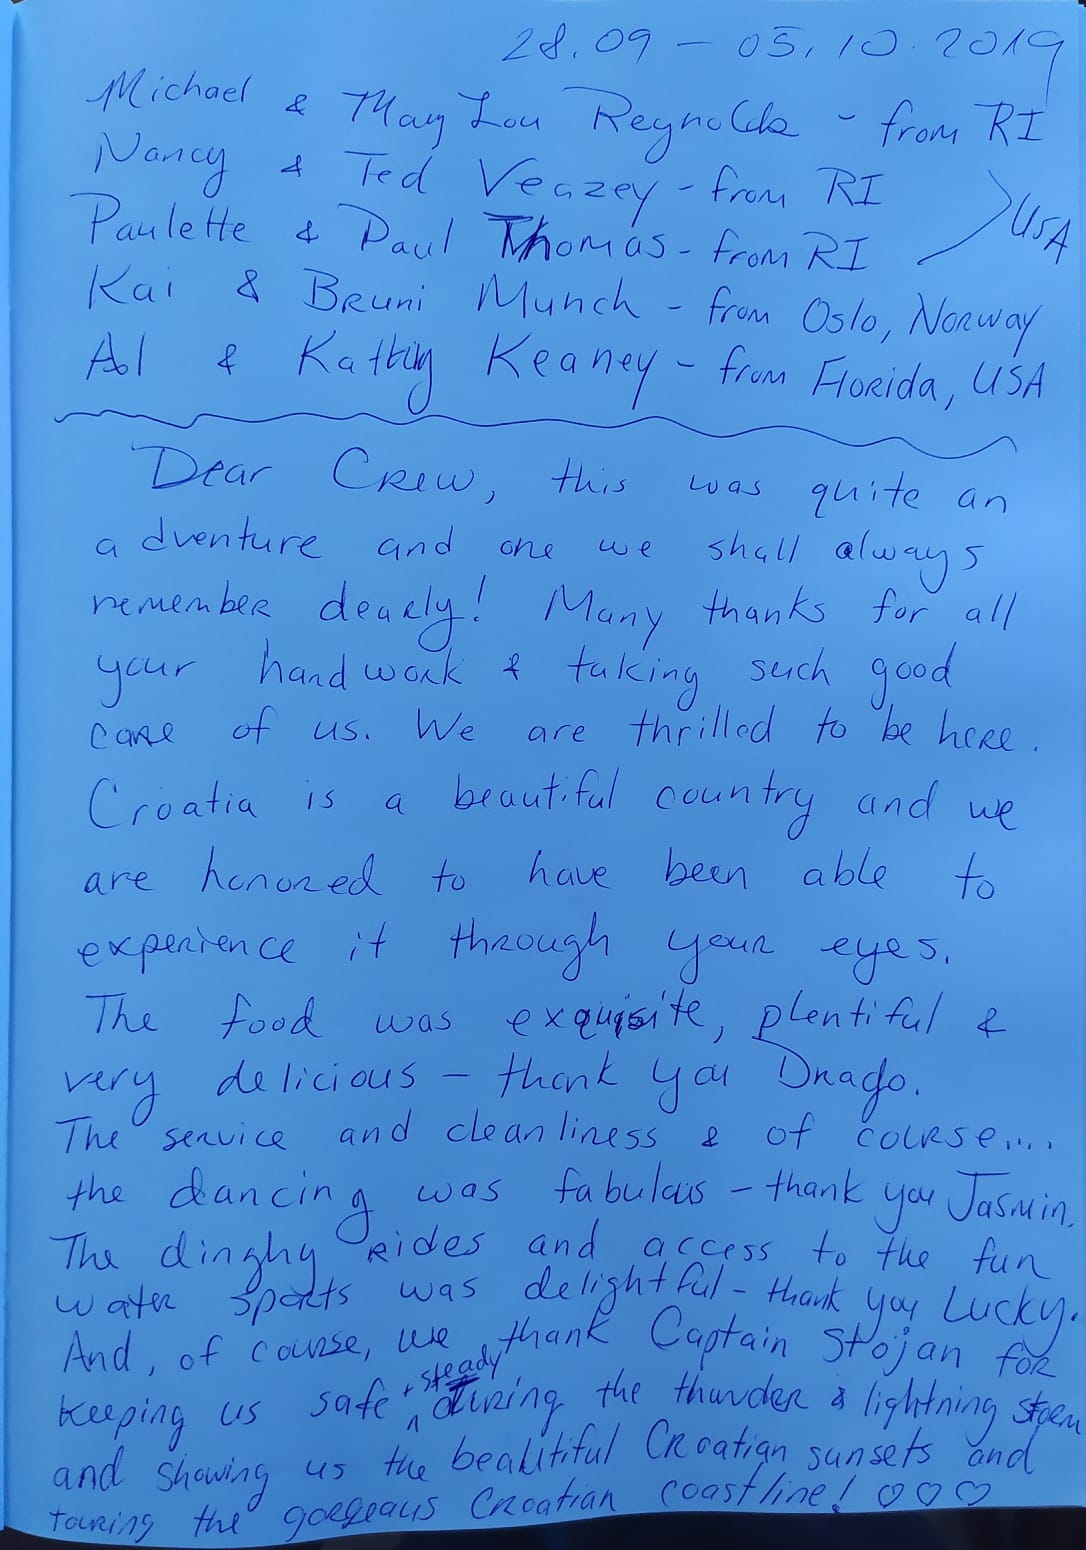 28.09 - 05.10.2019
Michael & Mary Lou Reynolds - from RI
Nancy & Ted Veazey - from RI
Paulette & Paul Thomas - from RI
USA
Kai & Bruni Munch - from Oslo, Norway
Al & Kathy Keaney - from Florida, USA
Dear Crew, this was quite an
adventure and one we shall always
remember dearly! Many thanks for all
your hard work & taking such good
care of us. We are thrilled to be here.
Croatia is a beautiful country and we
are honored to have been able to
experience it through your eyes.
The food was exquisite, plentiful &
very delicious - thank you Drago.
The service and cleanliness & of course....
the dancing was fabulous - thank you Jasmin.
The dinghy rides and access to the fun
water sports was delightful - thank you Lucky.
And, of course, we thank Captain Stojan for
keeping us safe + steady during the thunder & lightning storm
and showing us the beautiful Croatian sunsets and
touring the gorgeous Croatian coastline! ♡♡♡